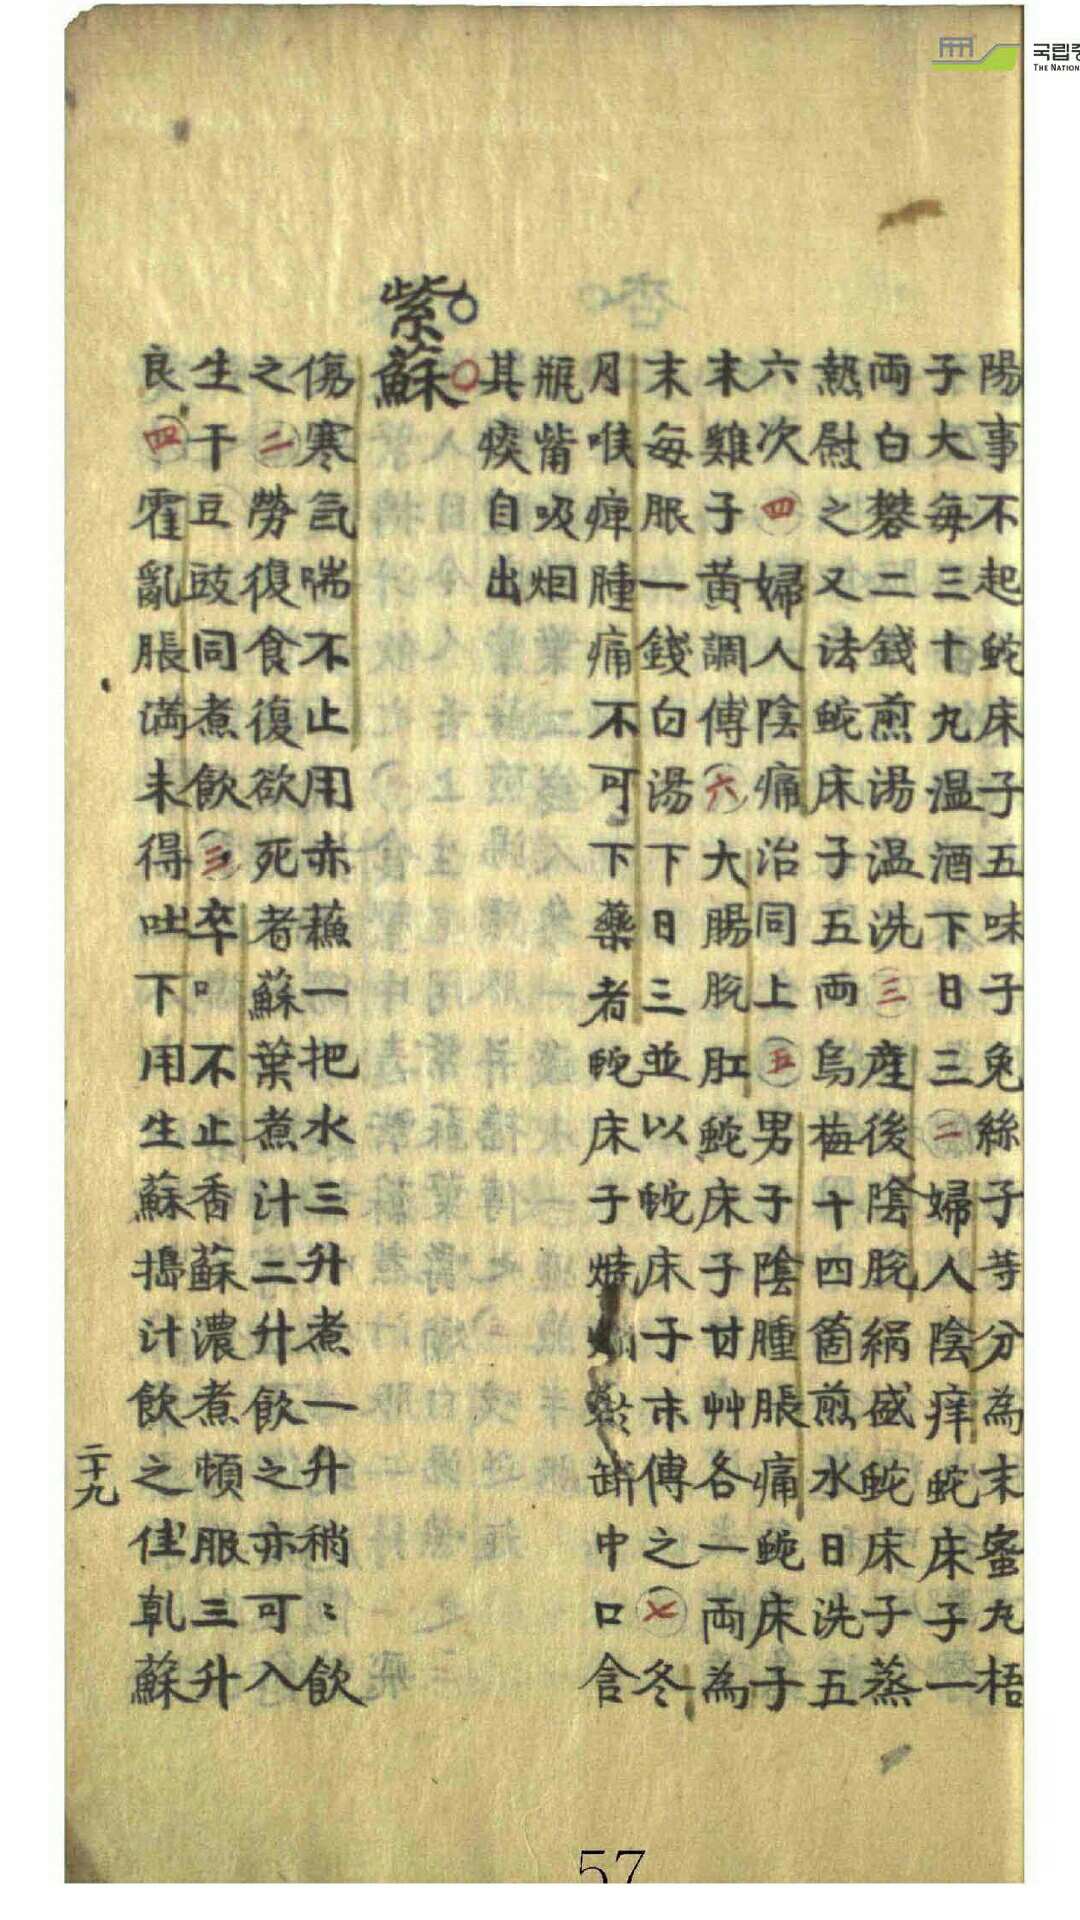 국립중
THE NATION
陽事不起蛇床子五味子兔絲子等分為末蜜丸梧
子大每三十丸温酒下日三㊁婦人陰痒蛇床子一
両白礬二錢煎湯温洗㊂産後陰脫絹盛蛇床子蒸
熱慰之又法蛇床子五両烏梅十四箇煎水日洗五
六次㊃婦人陰痛治同上㊄男子陰腫脹痛蛇床子
末雞子黃調傅㊅大腸脫肛蛇床子甘艸各一両為
末每服一錢白湯下日三並以蛇床子末傅之㊆冬
月喉痺腫痛不可下藥者蛇床子燒 缾中口含
瓶觜吸烟
其痰自出
紫蘇
傷寒氣喘不止用赤蘓一把水三升煮一升稍〻飲
之㊁勞復食復欲死者蘇葉煮汁二升飲之亦可入
生干豆豉同煮飲㊂卒 不止香蘇濃煮頓服三升
良㊃霍亂脹満未得吐下用生蘇搗汁飲之佳乹蘇
二十九
57